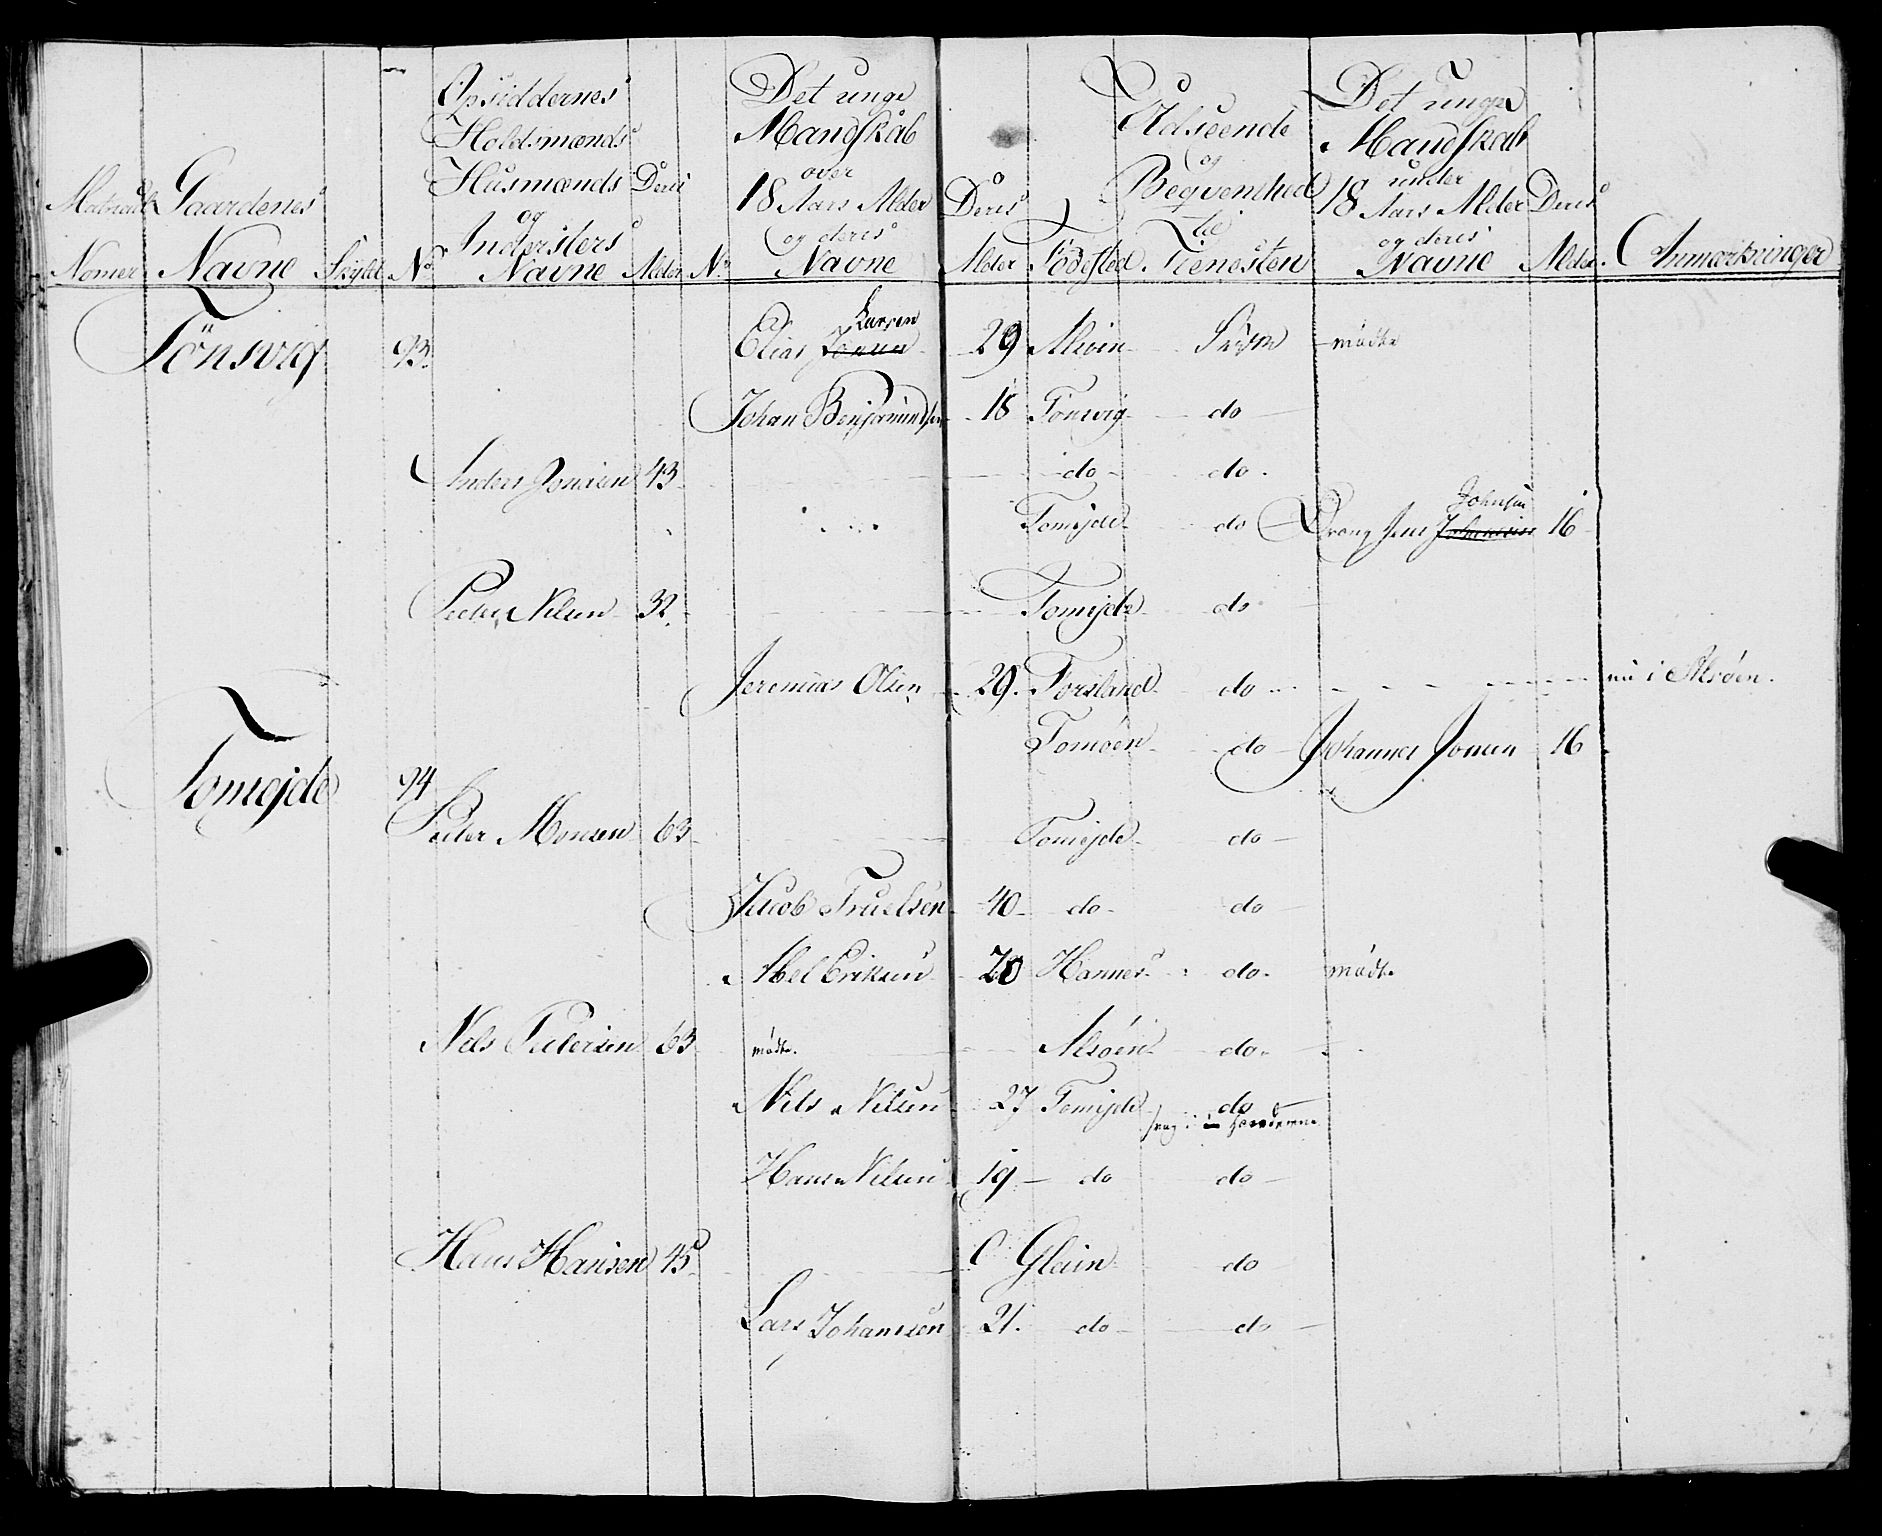 Gaardenes Navne
Skyld
No
Opsiddernes Holdsmænds Husmænds og Indersters Navne
Deris Alder
No
Det unge Mandskab over 18 Aars Alder og deres Navne
Deres Alder
Födested
Udseende og Beqvemhed Til Tienesten
Det unge Mandskab under 18 Aars Alder og deres Navne
Deres Alder
Anmærkninger
Tönsvig 93.
Larsen
Elias 29 do mödte
Johan Benjaminsen 18 Tönsvig do
Anders Jonsen 43 do do
Johnsen
Tomejde do Dreng Jens 16
Peder Nilsen 32 Tomejde do
Jeremias Olsen 29. Forsland do nu i Alsöen.
Tomöen do Johannes Jonsen 16
Tomejde 94
Peder Monsen 63 Tomejde do
Jacob Truelsen 40 do do
Abel Eriksen 28 Hannes do mödte
Nels Pedersen 63 mödte. Alsöen do
Nils Nilsen 27 Tomejde do
svag i Hænderne
Hans Nilsen 19 do do
Hans Hansen 45 Glein do
Lars Johansen 21. do do